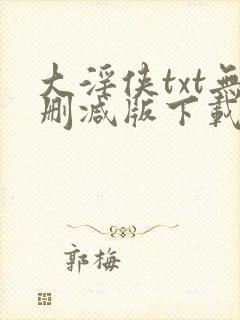 大淫侠txt無
删减版下載
郭梅